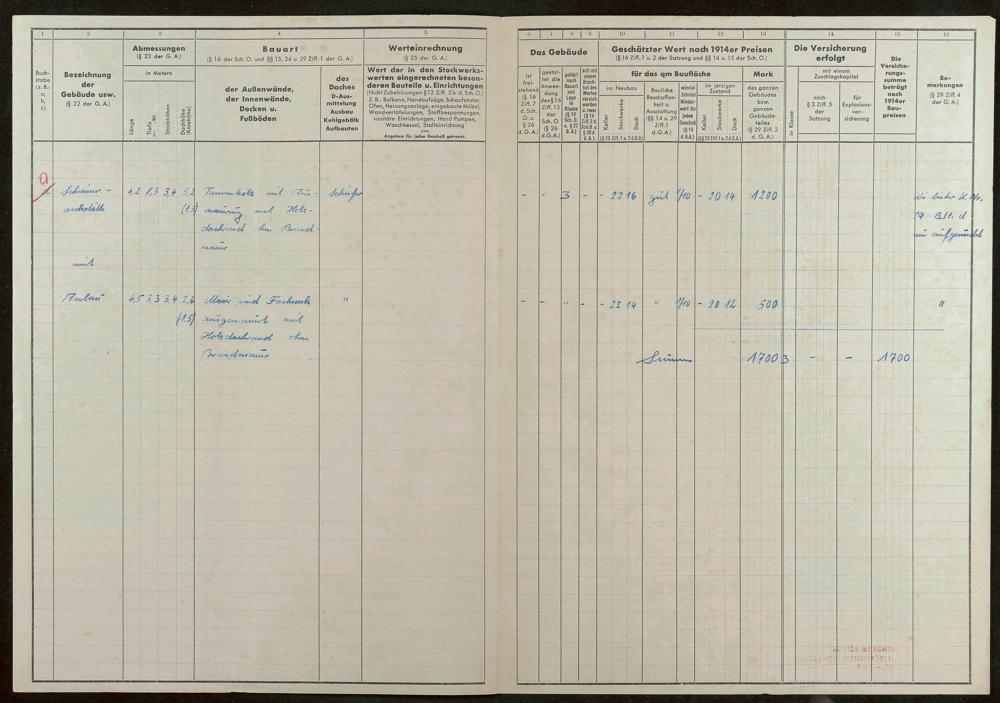 1 2 3 4 5
Buch-
stabe
(z. B.:
a,
b,
c)
Bezeichnung
der
Gebäude usw.
(§ 22 der G. A.)
Abmessungen
(§ 23 der G. A.)
in Metern
Länge
Tiefe
Stockhöhen
Bauart
(§ 16 der Sch. O. und §§ 15, 24 u. 29 Ziff. 1 der G. A.)
der Außenwände,
der Innenwände,
Decken u.
Fußböden
des
Daches
D-Aus-
mittelung
Ausbau
Kehlgebälk
Aufbauten
Werteinrechnung
(§ 25 der G. A.)
Wert der in den Stockwerks-
werten eingerechneten beson-
deren Bauteile u. Einrichtungen
(Nicht Zubehörungen § 12 Ziff. 2 b d. Sch. O.)
Z. B.: Balkone, Handaufzüge, Schaufenster,
Öfen, Heizungsanlage, eingebaute Möbel,
Wandvertäferungen, Stoffbespannungen,
sanitäre Einrichtungen, Hand Pumpen,
Waschkessel, Stalleinrichtung
usw.
Angaben für jedes Geschoß getrennt.
a
Schreiner-
werkstätte
4,2 1,3 3,4 5,2
(1.5)
Tannenholz mit Aus-
mauerung mit Holz-
dachrand ohne Brand-
mauer
Schiefer
mit
Anbau
4,5 3,3 3,4 2,6
(1.5)
Mauer und Fachwerk
ausgemauert mit
Holzdachrand ohne
Brandmauer
"
6 7 8 9 10 11 12 13 14 15 16
Das Gebäude
ist
frei-
stehend
(§ 16
Ziff. 7
d. Sch.
O. u.
§ 26
d. G. A.)
gestat-
tet die
Anwen-
dung
des § 16
Ziff. 13
der
Sch. O
(§ 26
d. G. A.)
gehört
nach
Bauart
und
Lage
in
Klasse
(§ 16
Sch. O.
u. § 27
G. A.)
Geschätzter Wert nach 1914er Preisen
(§ 16 Ziff. 1 u. 2 der Satzung und §§ 14 u. 15 der Sch. O.)
für das qm Baufläche
im Neubau
Keller
Stockwerke
Dach
Bauliche
Beschaffen-
heit u.
Ausstattung
(§§ 14 u. 29
Ziff. 1
d. G. A.)
im jetzigen
Zustand
Keller
Stockwerke
Dach
Mark
des ganzen
Gebäudes
bzw.
ganzen
Gebäude-
teiles
(§ 29 Ziff. 2
d. G. A.)
Die Versicherung
erfolgt
in Klasse
mit einem
Zuschlagskapital
nach
§ 3 Ziff. 5
der
Satzung
für
Explosions-
ver-
sicherung
Die
Versiche-
rungs-
summe
beträgt
nach
1914er
Bau-
preisen
Be-
merkungen
(§ 29 Ziff. 4
der G. A.)
- - 3 - - 22 16 gut 1/10 - 20 14 1200
Wie bisher K. Nr.
29 Bst. d
neu aufgenommen
- - " - - 22 14 " 1/10 - 20 12 500 "
Summe 1700 3 - - 1700